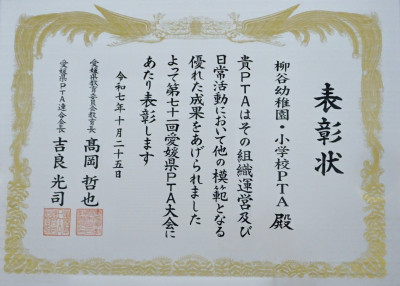 表彰状
柳谷幼稚園・小学校PTA殿
貴PTAはその組織運営及び
日常活動において他の模範となる
優れた成果をあげられました
よって第七十一回愛媛県PTA大会に
あたり表彰します
令和七年十月二十五日
愛媛県教育委員会教育長 髙岡哲也
愛媛県PTA連合会会長 吉良光司